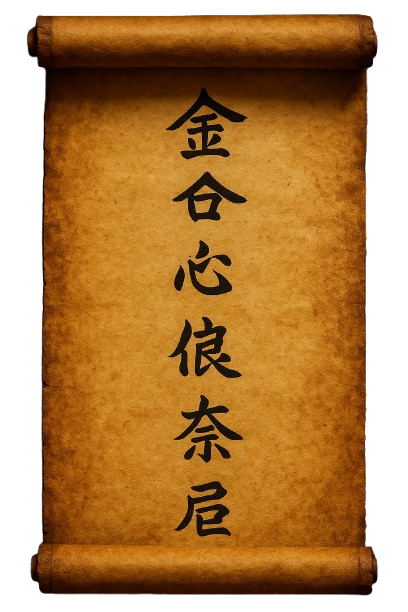 金合心俍奈